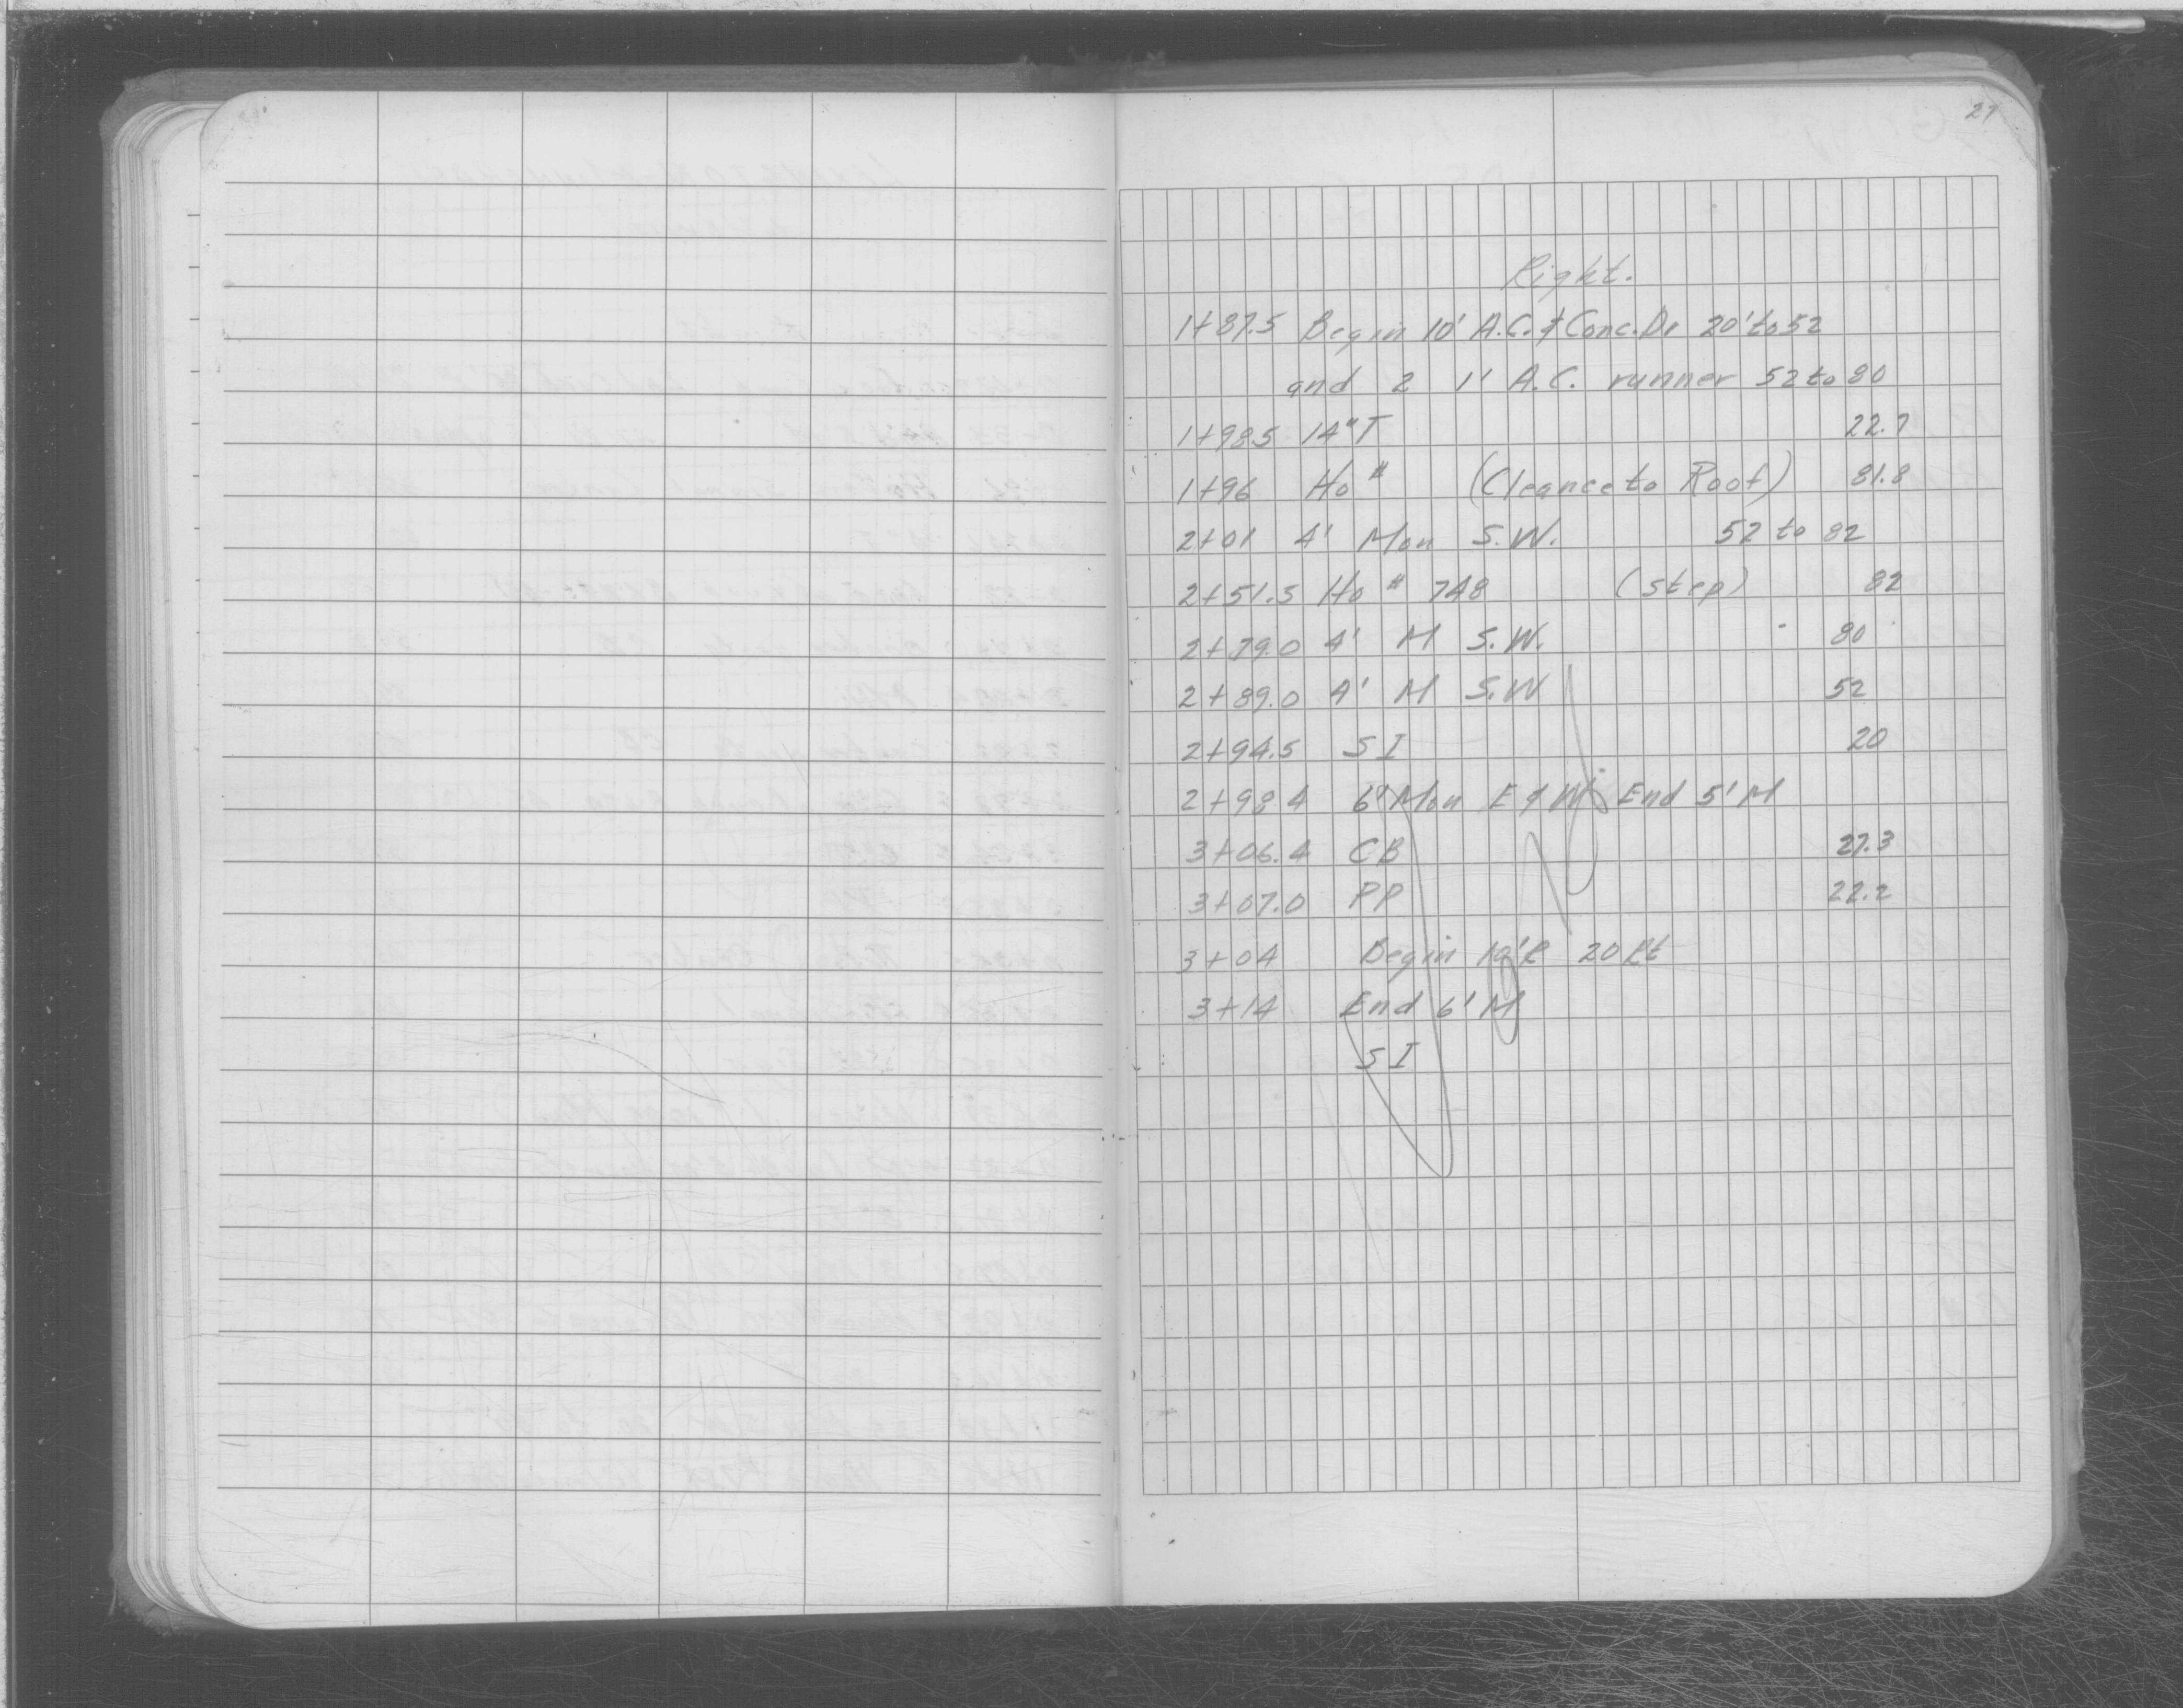 27
Right.
1+87.5 Begin 10' A.C. & Conc. Dr 20' to 52
and 2 1' A.C. runner 52 to 80
1+98.5 14" T 22.7
1+96 Ho # (Cleance to Roof) 81.8
2+01 4' Mon S.W. 52 to 82
2+51.5 Ho # 748 (step) 82
2+79.0 4' M S.W. 80
2+89.0 4' M S.W 52
2+94.5 S I 20
2+98.4 6' Mon E & W End 5' M
3+06.4 CB 27.3
3+07.0 PP 22.2
3+04 Begin 10' R 20 Rt
3+14 End 6' M
S I